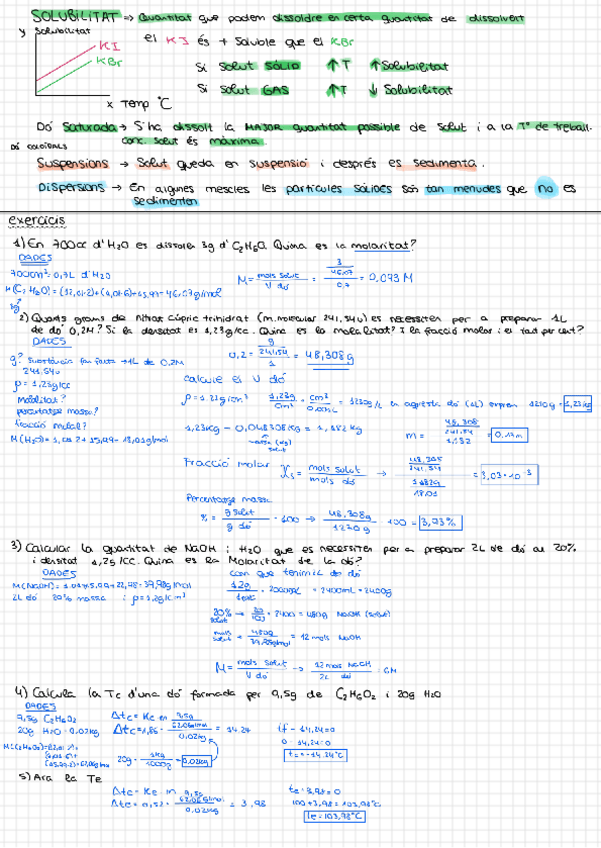 SOLUBILITAT => Quantitat que podem dissoldre en certa quantitat de dissolvent
y Solubilitat
KI
KBr
x Temp °C
el KI és + Soluble que el KBr
Si Solut SÒLID ↑T ↑Solubilitat
Si Solut GAS ↑T ↓ Solubilitat
Dó Saturada → S'ha dissolt la MAJOR quantitat possible de solut i a la Tª de treball.
conc. solut és màxima.
Dó COLOIDALS
Suspensions → Solut queda en suspensió i després es sedimenta.
Dispersions → En algunes mescles les partícules sòlides són tan menudes que no es
sedimenten
exercicis
1) En 700cc d'H2O es dissolen 3g d' C2H6O. Quina es la molaritat?
DADES
700cm³ · 0,7L d'H2O
M = mols solut / V dó = 3 / 46,07 / 0,7 = 0.093 M
2) Quants grams de nitrat cúpric trihidrat (m.molecular 241,54u) es necessiten per a preparar 1L
de dó 0,2M? Si la densitat es 1,23g/cc. Quina es la molalitat? I la fracció molar i el tant per cent?
DADES
0,2 = g / 241,54 / 1 = 48,308g
241,54u
ρ = 1,23g/cc
Molalitat?
percentatge massa?
Fracció molar?
calcule el V dó
massa (kg)
solut
m = 48,308 / 241,54 / 1.182
Fracció molar Xs = mols solut / mols dó → 48,308 / 241,54 / 1182g / 18.01 = 3,03·10⁻³
Percentatge massa
% = g solut / g dó · 100 → 48,308g / 1230g · 100 = 3,93%
3) Calcular la quantitat de NaOH i H2O que es necessiten per a preparar 2L de dó al 20%
i densitat 1,2g/cc. Quina es la Molaritat de la dó?
DADES
com que tenim 2L de dó
2L dó 20% massa i ρ=1,2g/cm³
= 2400mL = 2400g
20% solut → 20/100 · 2400 = 480g NaOH (solut)
mols solut = 480g / 39,98g/mol = 12 mols NaOH
M = mols solut / V dó → 12 mols NaOH / 2L dó = 6M
4) Calcula la Tc d'una dó formada per 9,5g de C2H6O2 i 20g H2O
DADES
9,5g C2H6O2
20g H2O · 0.02kg
Δtc = Kc · m
Δtc = 1,86 · 9,5g / 62.06g/mol / 0,02kg = 14.24
20g · 1kg / 1000g = 0.02kg
tf - 14,24=0
0 - 14,24=0
t = -14.24°C
5) Ara la Te
Δte = Ke · m
Δte = 0,52 · 9,5g / 62.06g/mol / 0,02kg = 3,98
te · 3,98 = 0
100 + 3,98 = 103,98°C
Te = 103,98°C